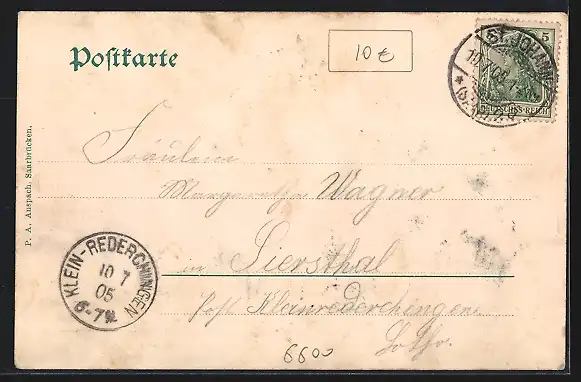 Postkarte
10 €
5
ST. JOHANN
DEUTSCHES REICH
P. A. Anspach, Saarbrücken.
Fräulein
Margaretha Wagner
in Siersthal
Post Kleinrederchingen
Lothr.
KLEIN-REDERCHINGEN
10 7
05
6-7N.
6600